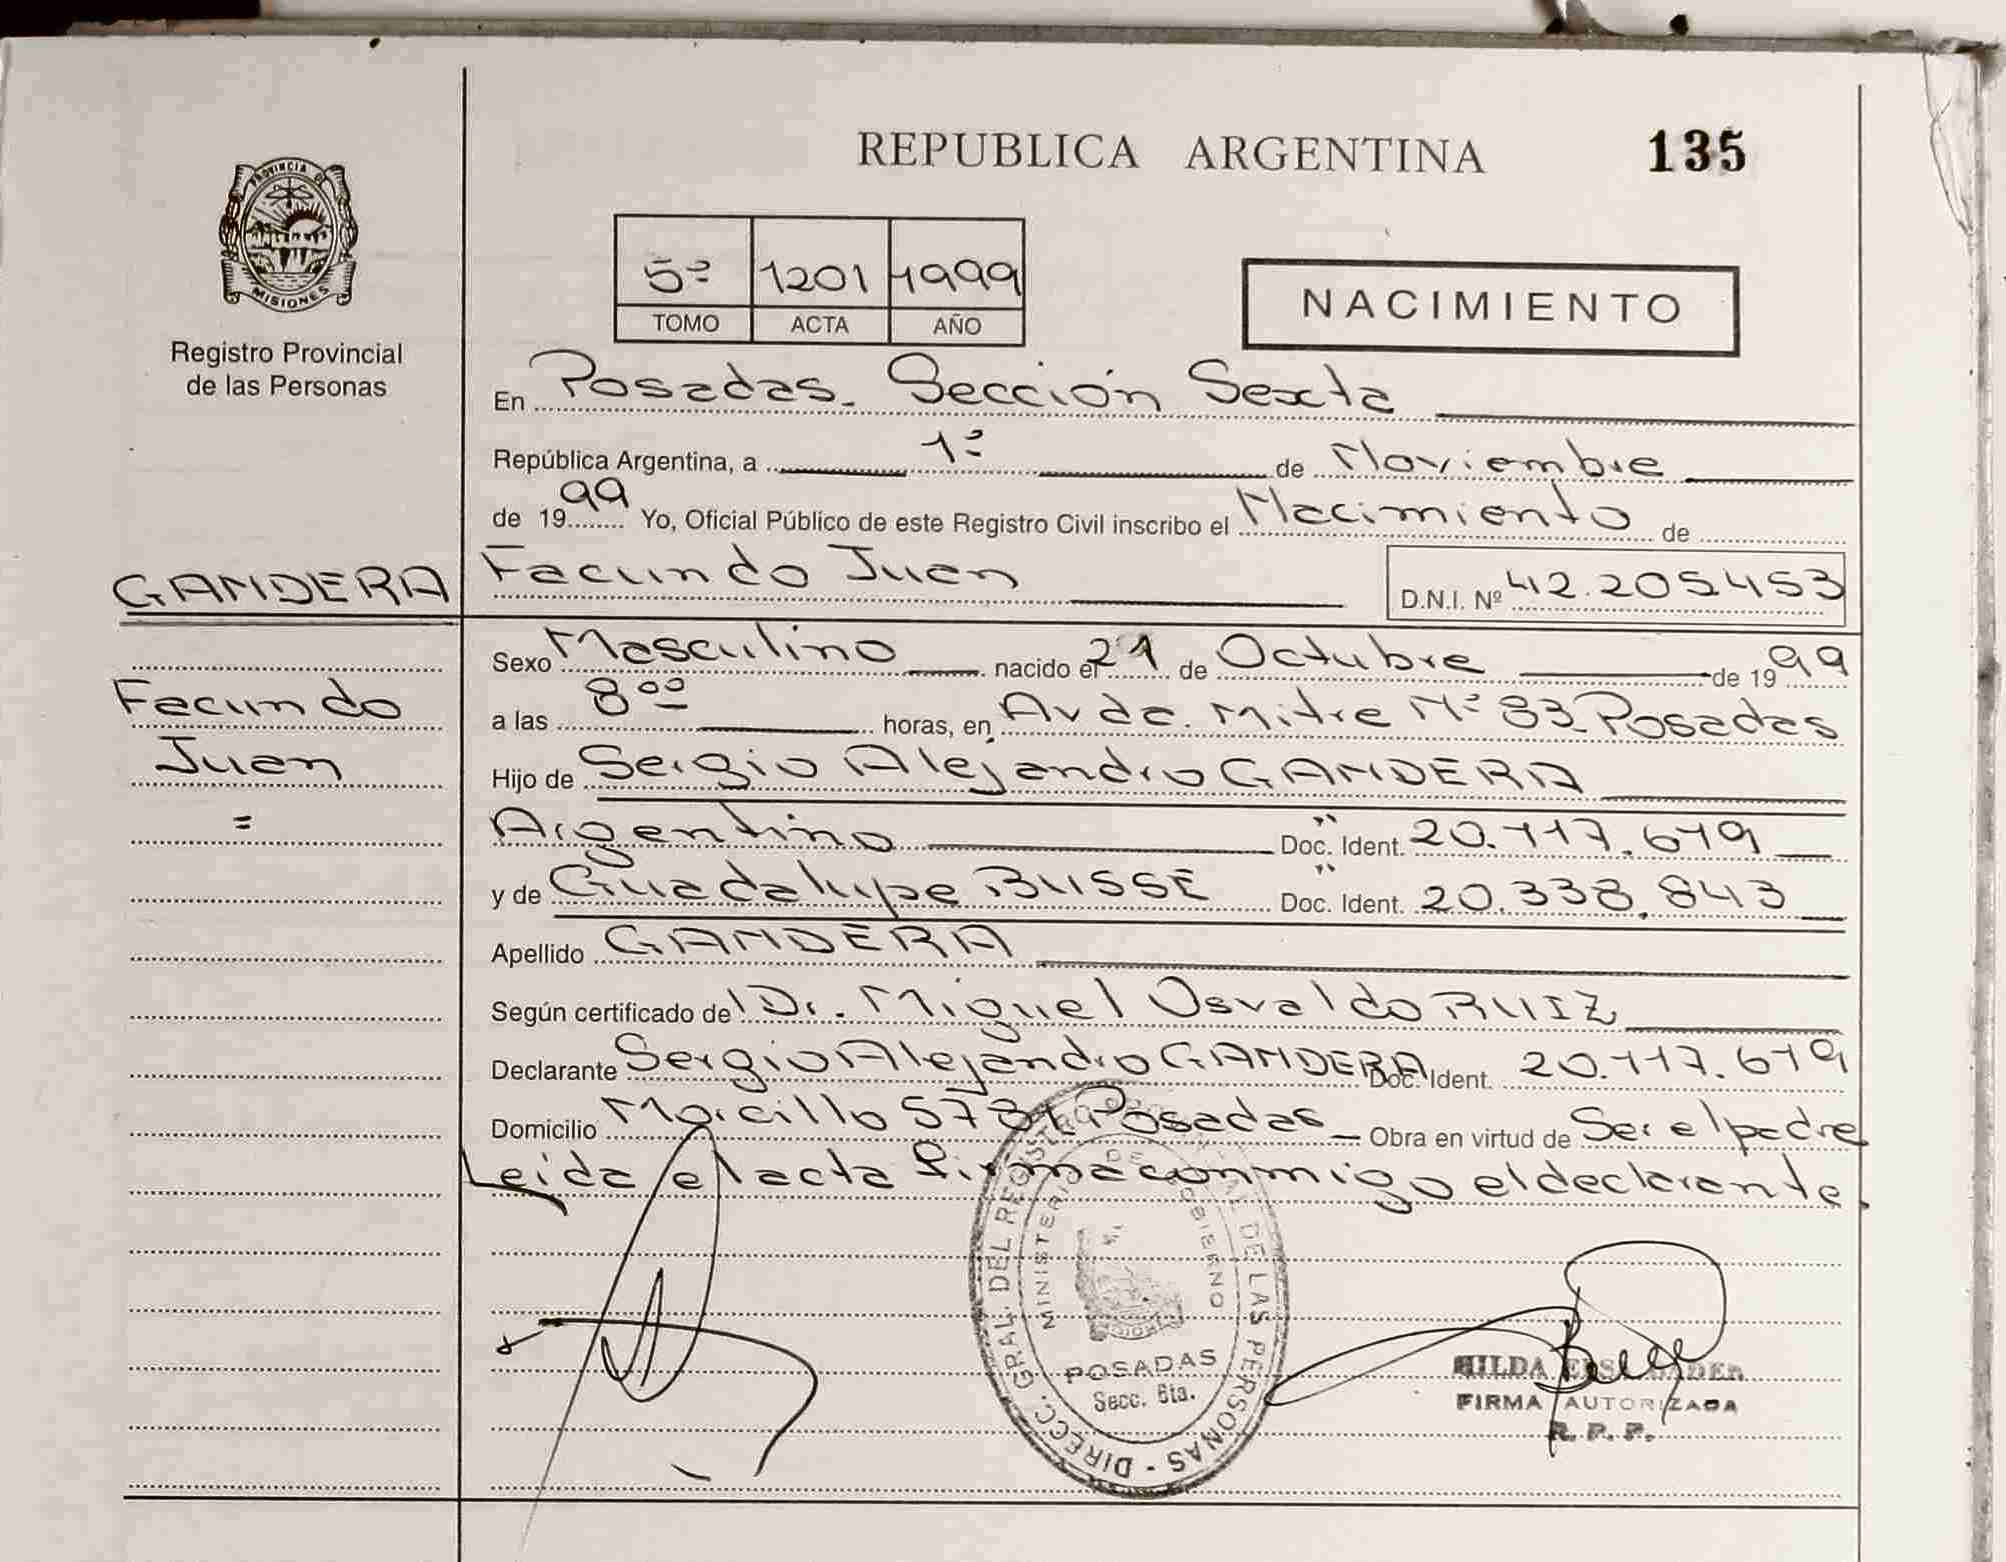 REPUBLICA ARGENTINA 135
PROVINCIA DE
MISIONES
Registro Provincial
de las Personas
5º 1201 1999
TOMO ACTA AÑO
NACIMIENTO
En Posadas. Sección Sexta
República Argentina, a 1º de Noviembre
de 1999 Yo, Oficial Público de este Registro Civil inscribo el Nacimiento de
GANDERA
Facundo Juan D.N.I. Nº 42.205453
Sexo Masculino nacido el 21 de Octubre de 1999
Facundo
Juan
=
a las 8ºº horas, en Avda. Mitre Nº 83 Posadas
Hijo de Sergio Alejandro GANDERA
Argentino Doc. Ident. 20.117.619
y de Guadalupe BUSSE Doc. Ident. 20.338.843
Apellido GANDERA
Según certificado del Dr. Miguel Osvaldo RUIZ
Declarante Sergio Alejandro GANDERA Doc. Ident. 20.117.619
Domicilio Morcillo Posadas Obra en virtud de Ser el padre
Leida el acta firma conmigo el declarante.
DIRECC. GRAL. DEL REGISTRO DE LAS PERSONAS
MINISTERIO DE GOBIERNO
POSADAS
Secc. 6ta.
HILDA
FIRMA AUTORIZADA
R. P. P.